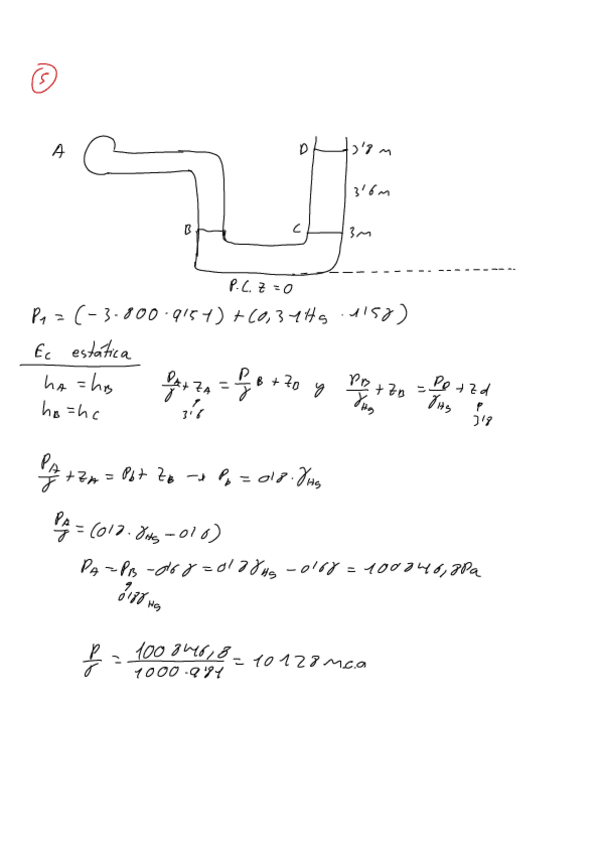 5
A
D 3'8 m
3'6 m
B C 3 m
P.C. z = 0
P₁ = (-3·800·9'51) + (0,31Hg · 1'5γ)
Ec estática
hA = hB
hB = hC
PA/γ + zA = P/γ B + zB y PB/γHg + zB = PD/γHg + zd
3'6 3'8
PA/γ + zA = Pb + zB → Pb = 0'8·γHg
PA/γ = (0'8·γHg - 0'6)
PA = PB - 0'6γ = 0'8γHg - 0'6γ = 100846,8Pa
0'8γHg
P/γ = 100846,8 / 1000·9'81 = 10'28 m.c.a